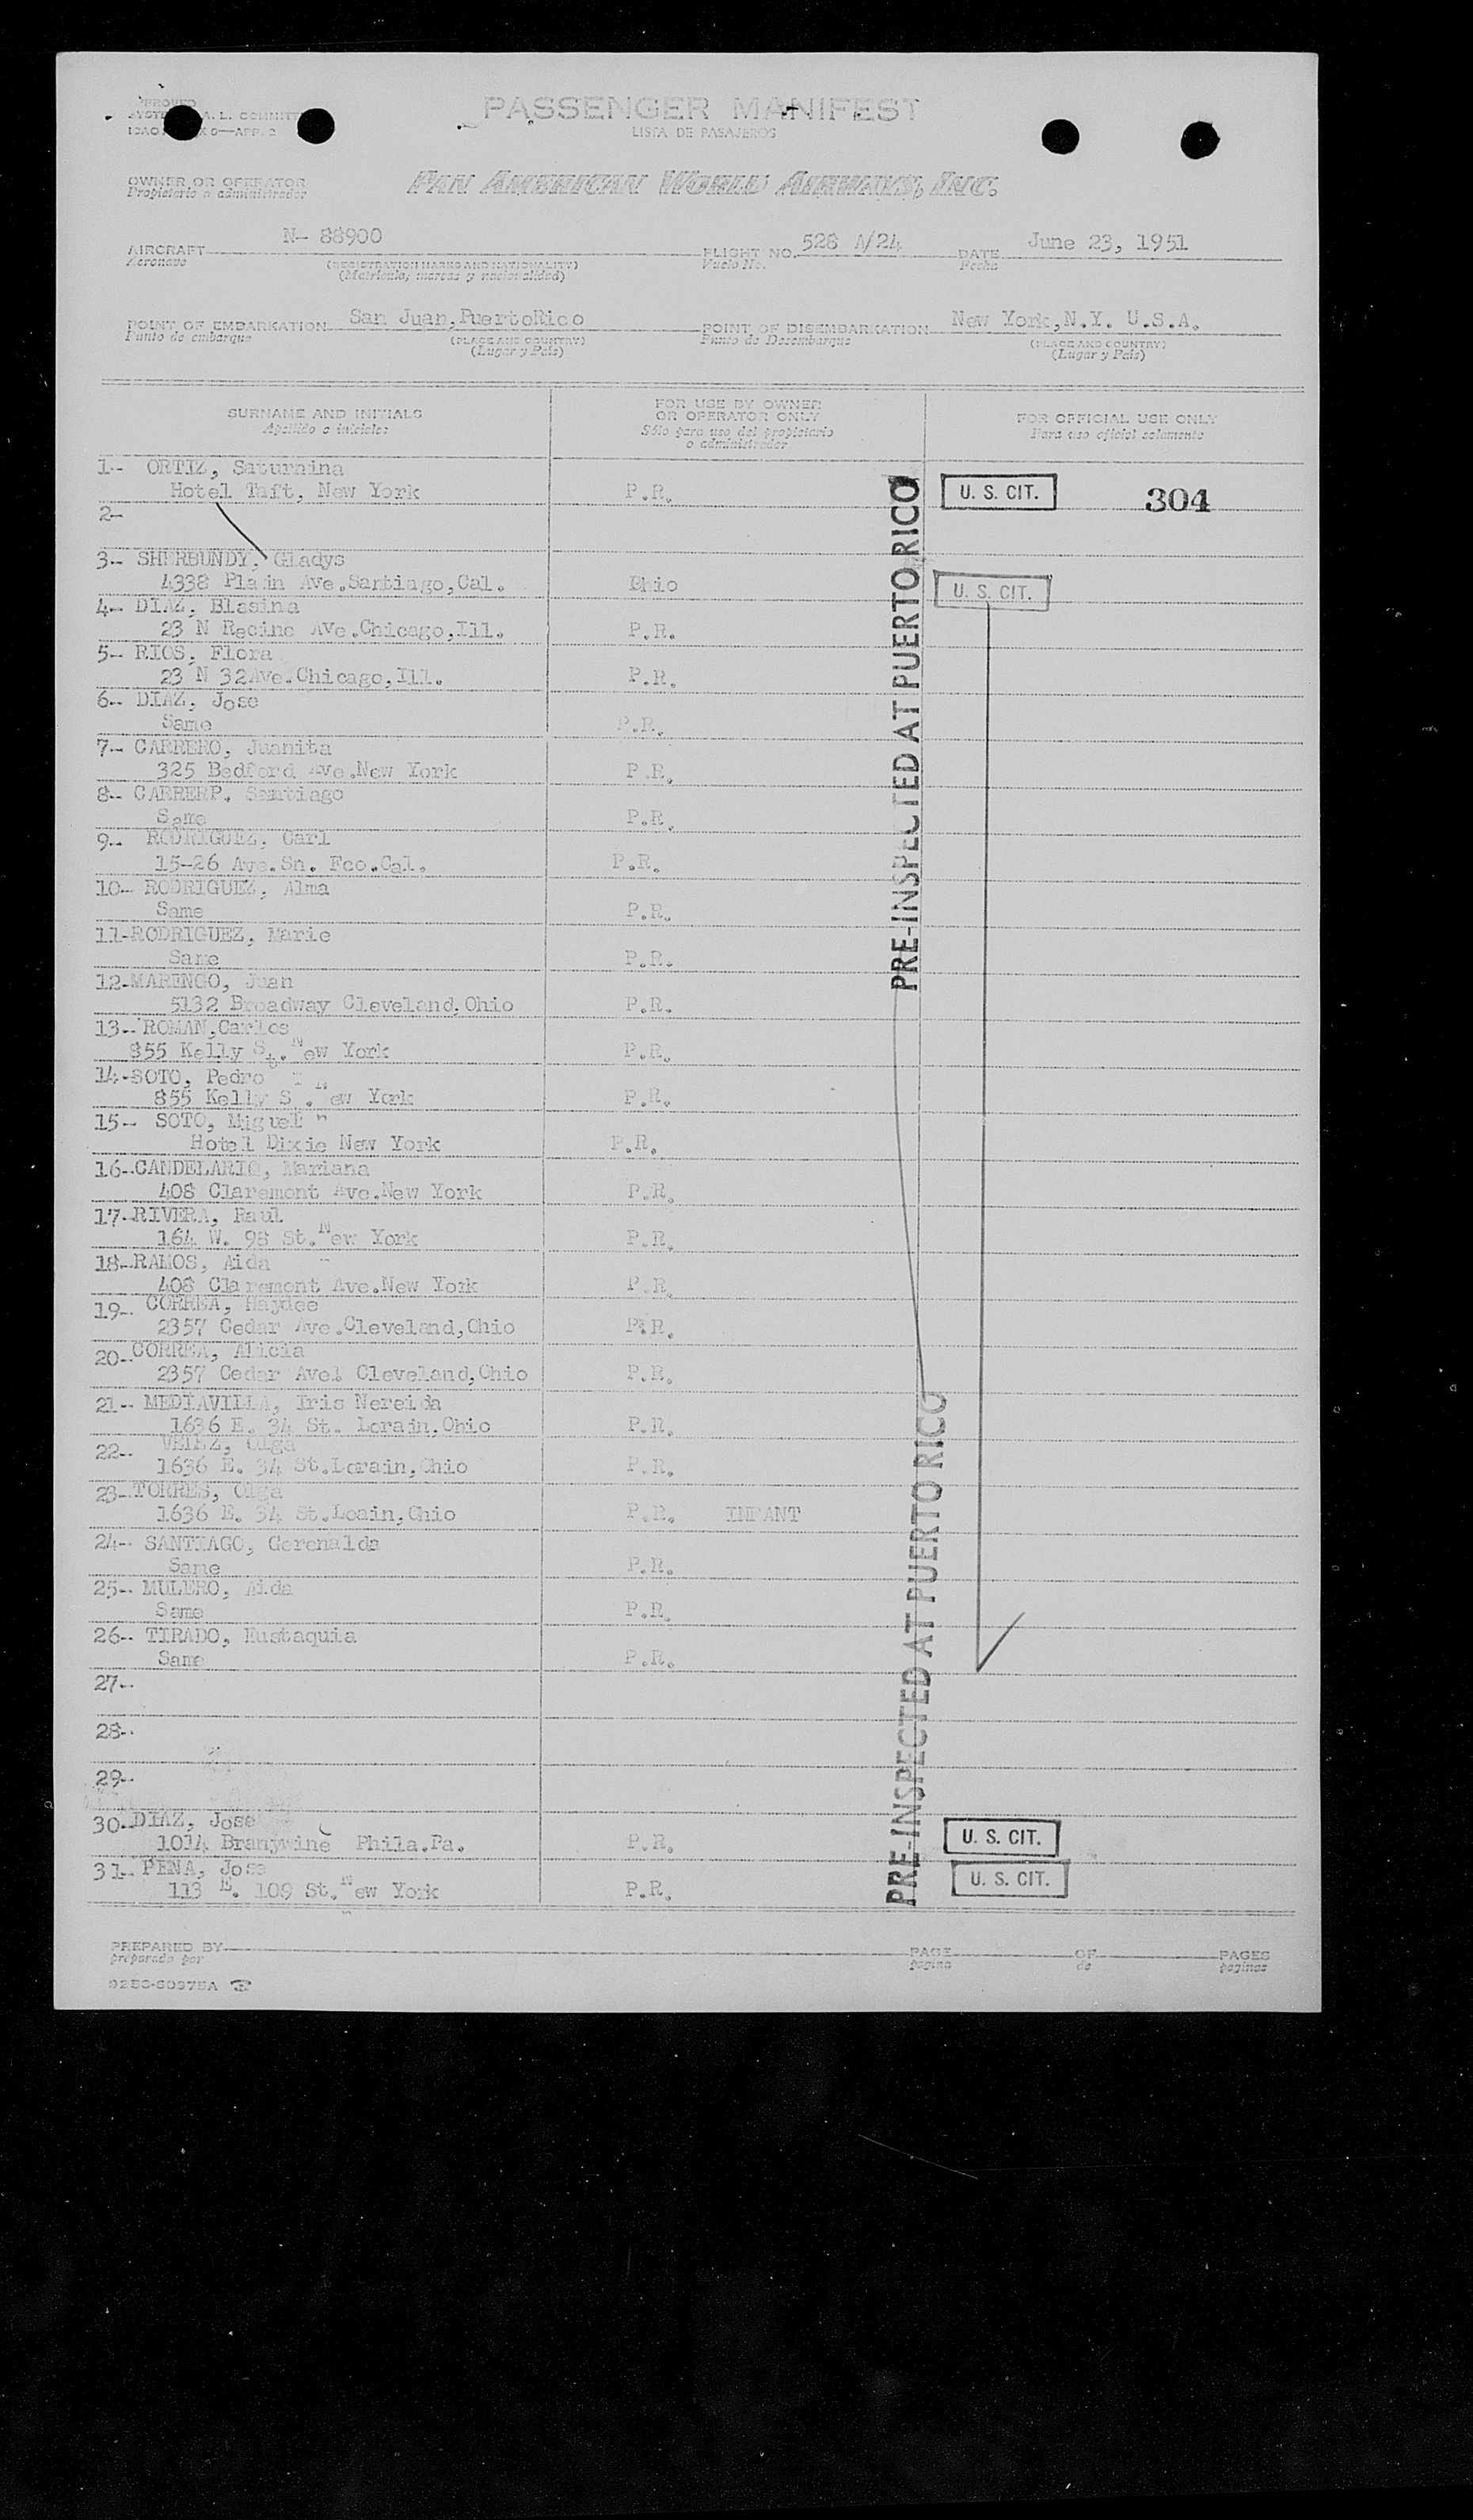 PASSENGER MANIFEST
LISTA DE PASAJEROS
OWNER OR OPERATOR
Propietario o administrador
PAN AMERICAN WORLD AIRWAYS, INC.
AIRCRAFT N- 88900 FLIGHT NO. 528 A/24 DATE June 23, 1951
Aeronave (REGISTRATION MARKS AND NATIONALITY) Vuelo No. Fecha
(Matricula, marcas y nacionalidad)
POINT OF EMBARKATION San Juan,PuertoRico POINT OF DISEMBARKATION New York,N.Y. U.S.A.
Punto de embarque (PLACE AND COUNTRY) Punto de Desembarque (PLACE AND COUNTRY)
(Lugar y País) (Lugar y País)
SURNAME AND INITIALS FOR USE BY OWNER OR OPERATOR ONLY FOR OFFICIAL USE ONLY
Apellido e iniciales Sólo para uso del propietario o administrador Para uso oficial solamente
1-- ORTIZ, Saturnina
Hotel Taft, New York P.R. U. S. CIT. 304
2-
3-- SHERBUNDY, Gladys
4338 Plain Ave.Santiago,Cal. Ohio U. S. CIT.
4-- DIAZ, Blasina
23 N Racine AVe.Chicago,Ill. P.R.
5-- RIOS, Flora
23 N 32Ave.Chicago,Ill. P.R.
6-- DIAZ, Jose
Same P.R.
7-- CARRERO, Juanita
325 Bedford Ave.New York P.R.
8-- CARRERP, Santiago
Same P.R.
9-- RODRIGUEZ, Carl
15-26 Ave.Sn. Fco.Cal. P.R.
10-- RODRIGUEZ, Alma
Same P.R.
11-RODRIGUEZ, Marie
Same P.R.
12-MARENGO, Juan
5132 Broadway Cleveland,Ohio P.R.
13-- ROMAN,Carlos
855 Kelly St. New York P.R.
14-SOTO, Pedro
855 Kelly S . ew York P.R.
15-- SOTO, Miguel
Hotel Dixie New York P.R.
16-CANDELARIO, Mariana
408 Claremont Ave.New York P.R.
17-RIVERA, Raul
164 W. 98 St.New York P.R.
18-RAMOS, Aida
408 Claremont Ave.New York P.R.
19-- CORREA, Haydee
2357 Cedar Ave.Cleveland,Ohio P.R.
20-CORREA, Alicia
2357 Cedar Avel Cleveland,Ohio P.R.
21-- MEDIAVILLA, Iris Nereida
1636 E. 34 St. Lorain,Ohio P.R.
22-- VELEZ, Olga
1636 E. 34 St.Lorain,Ohio P.R.
23-TORRES, Olga
1636 E. 34 St.Loain,Ohio P.R. INFANT
24-- SANTIAGO, Gerenalda
Same P.R.
25-- MULERO, Aida
Same P.R.
26-- TIRADO, Eustaquia
Same P.R.
27--
28--
29--
30-DIAZ, Jose
1014 Branywine Phila.Pa. P.R. U. S. CIT.
31- PENA, Jose
113 E. 109 St.New York P.R. U. S. CIT.
PRE-INSPECTED AT PUERTO RICO
PRE-INSPECTED AT PUERTO RICO
PREPARED BY PAGE OF PAGES
preparado por página de paginas